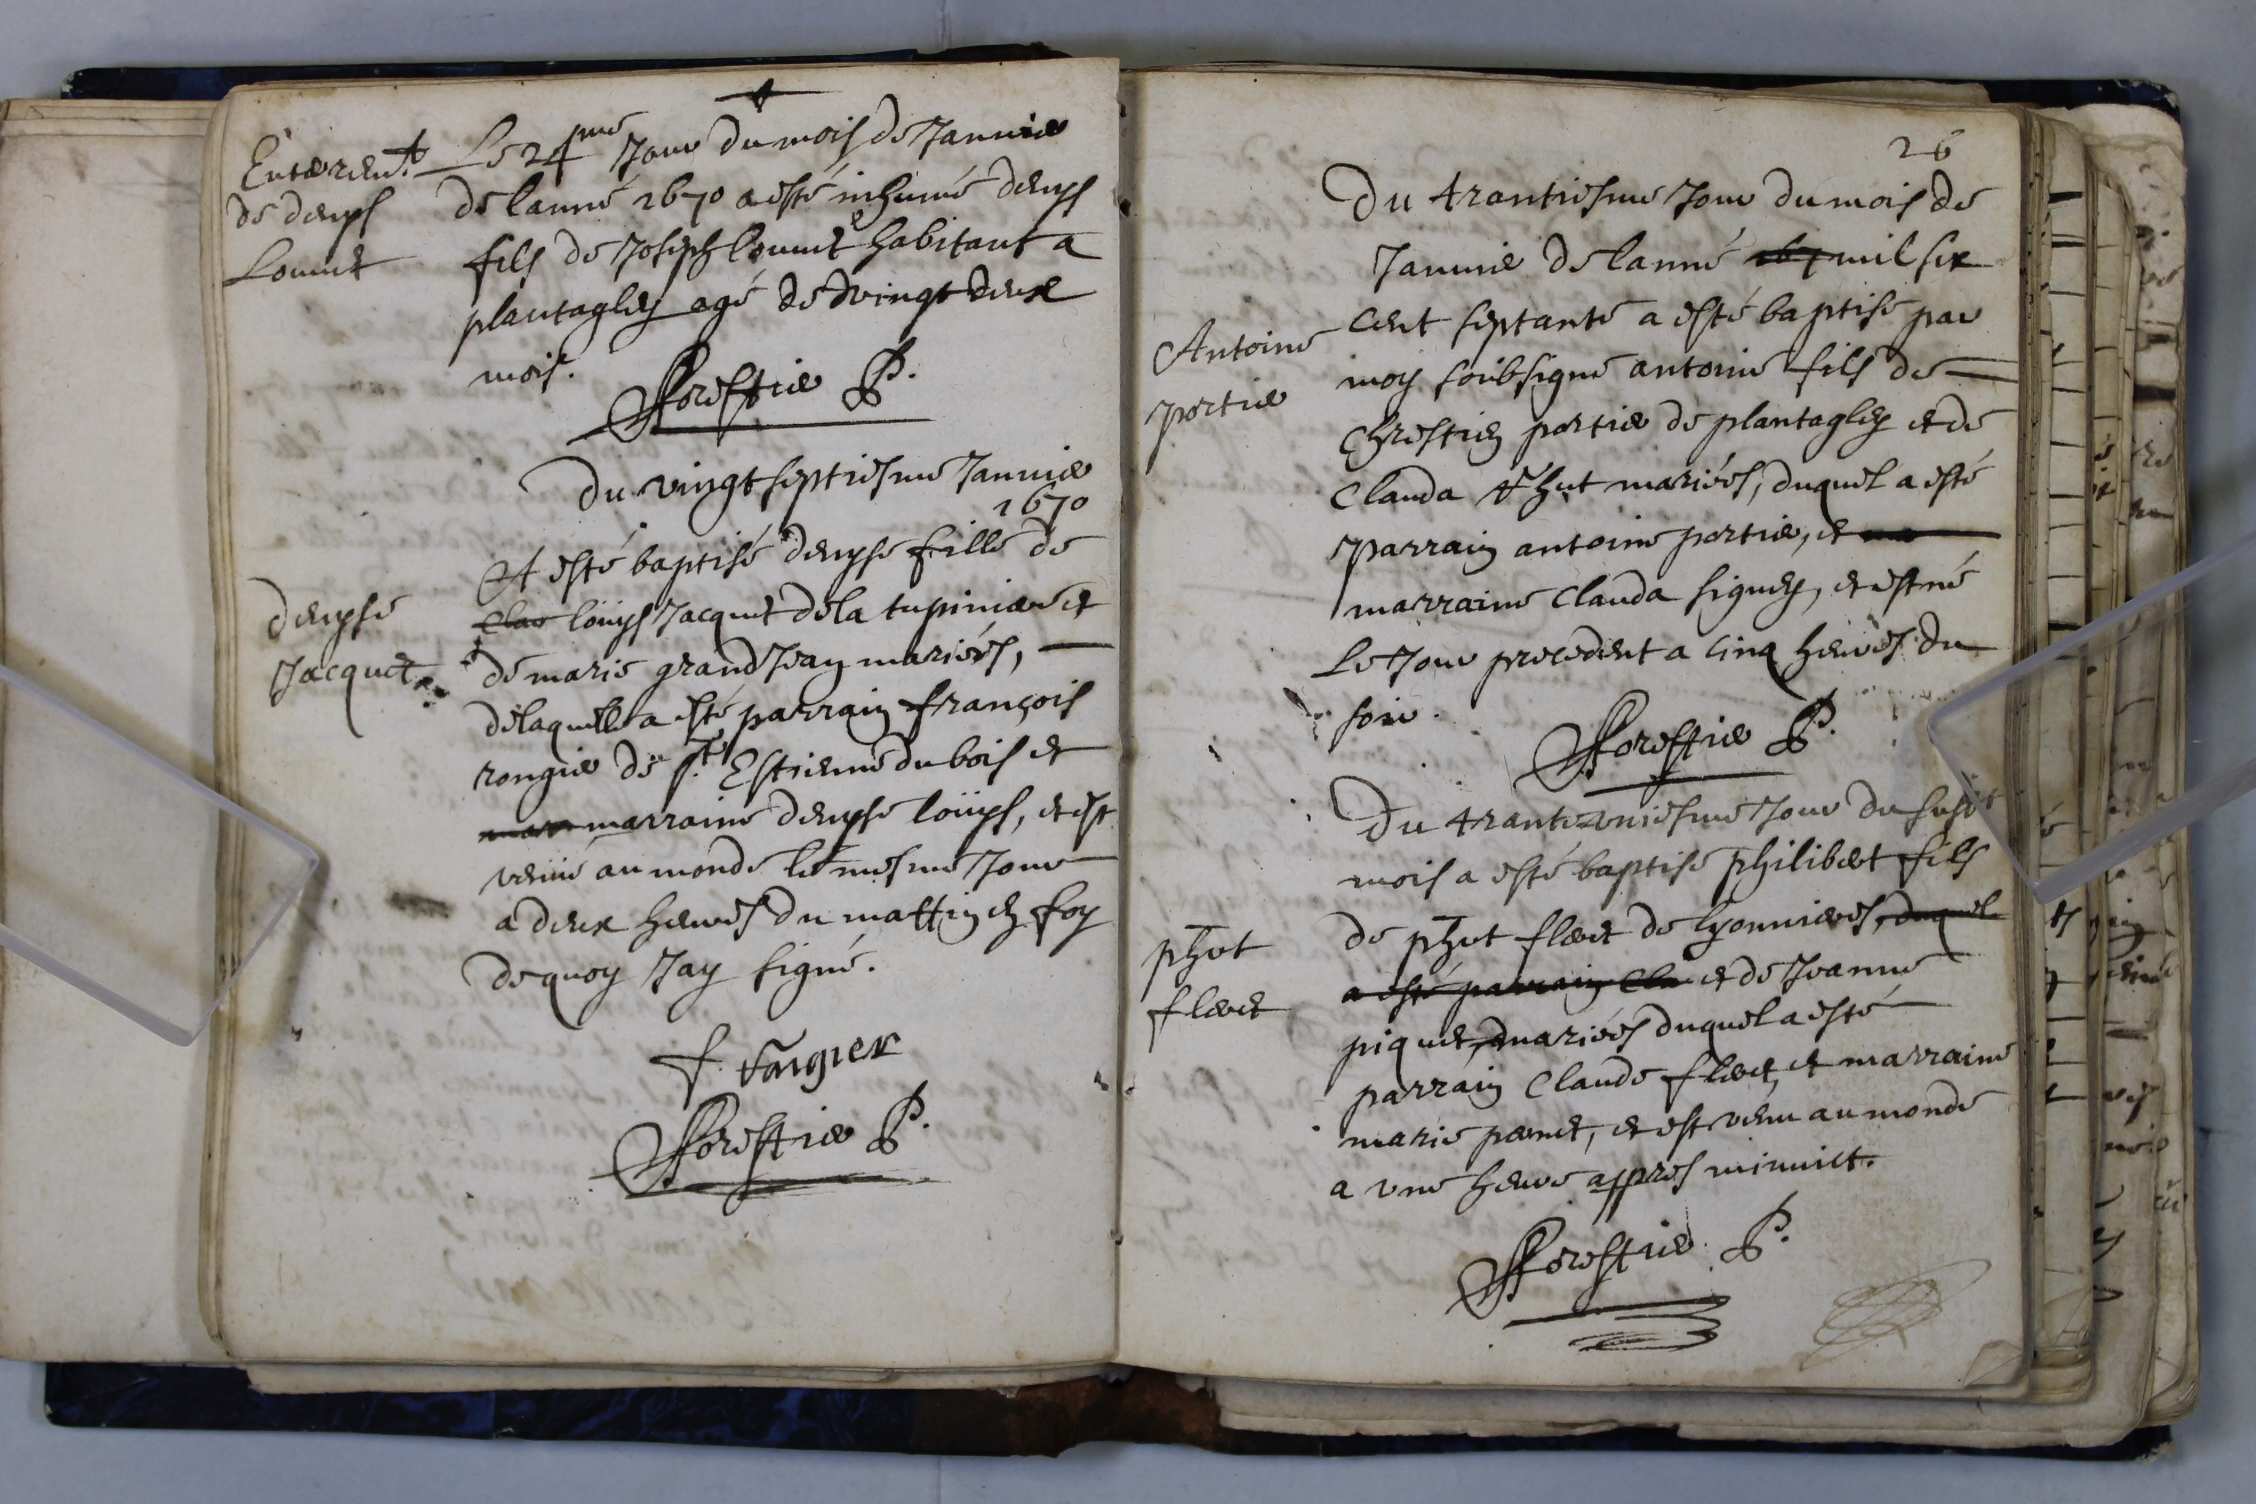 Enteremt
de denys
Lounet
Le 24me Jour du mois de Januier
de lanné 1670 a esté inhumé denys
fils de Joseph Lounet habitant a
plantagley agé de vingt deux
mois.
Forestier P.
Du vingt septiesme Januier
1670
denyse
Jacquet
A esté baptisé denyse fille de
louys Jacquet de la tupiniere et
de marie grand Jean mariés,
de laquelle a esté parrain françois
rongier de st Estienne du bois et
marraine denyse loüys, et est
venüe au monde le mesme Jour
a deux heures du mattin en foy
de quoy Jay signé.
f.
Forestier P.
26
Du trantiesme Jour du mois de
Januier de lanné mil six
Antoine
portier
cent septante a esté baptisé par
moy soubsigné antoine fils de
Chrestien portier de plantagley et de
Clauda mariés, duquel a esté
parrain antoine portier, et
marraine Clauda signey, et est né
Le Jour precedent a cinq heures du
soir.
Forestier P.
Du trante uniesme Jour du susdt
mois a esté baptisé philibert fils
phet
fleret
de phet fleret de lyonnieres, duquel
a esté parrain Cla et de Jeanne
piquet, mariés duquel a esté
parrain Claude fleret, et marraine
marie pernet, et est venu au monde
a une heure appres minuict.
Forestier P.